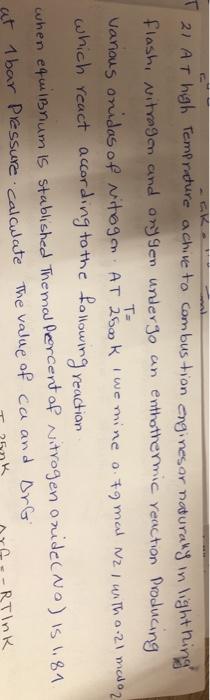 21 AT high Temprature achive to combustion engines or naturaly in lighthing
flash, Nitrogen and oxygen undergo an enthothermic reaction Producing
various oxidas of Nitrogen. AT 2500k I we mine 0.79 mol N2 / with 0.21 mol O2
T=
which react according to the following reaction
when equilibrium is stablished The mol Percent of Nitrogen oxide (NO) IS 1.81
at 1 bar Pressure. calculate The value of ca and ΔrG.
ΔrG = -RT ln K